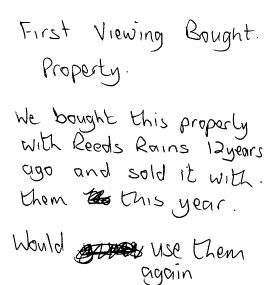 First Viewing Bought.
Property.
We bought this property
with Reeds Rains 12years
ago and sold it with.
them this year.
Would use them
again